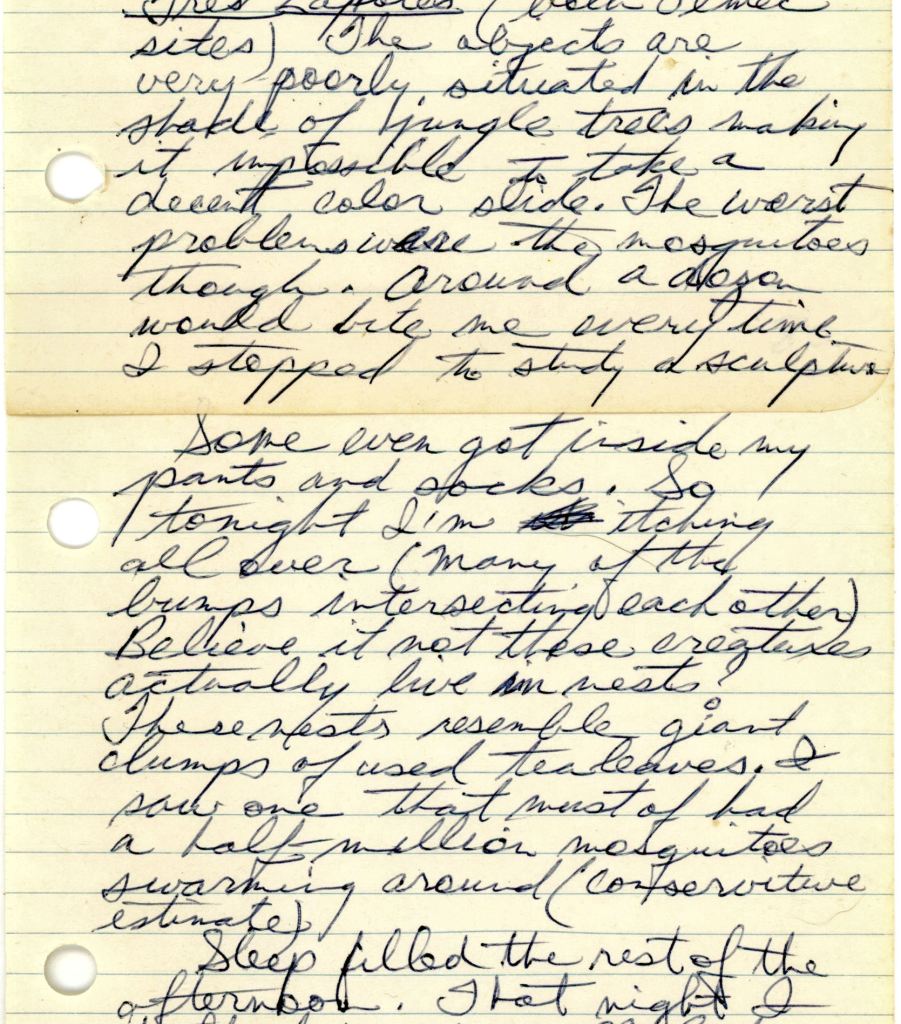 Tres Zapotes (both Olmec
sites) The objects are
very poorly situated in the
shade of jungle trees making
it impossible to take a
decent color slide. The worst
problems were the mosquitoes
though. Around a dozen
would bite me every time
I stopped to study a sculpture
Some even got inside my
pants and socks. So
tonight I'm itching
all over (many of the
bumps intersecting each other)
Believe it not these creatures
actually live in nests!
These nests resemble giant
clumps of used tealeaves. I
saw one that must of had
a half-million mosquitoes
swarming around (conservitive
estimate)
Sleep filled the rest of the
afternoon. That night I